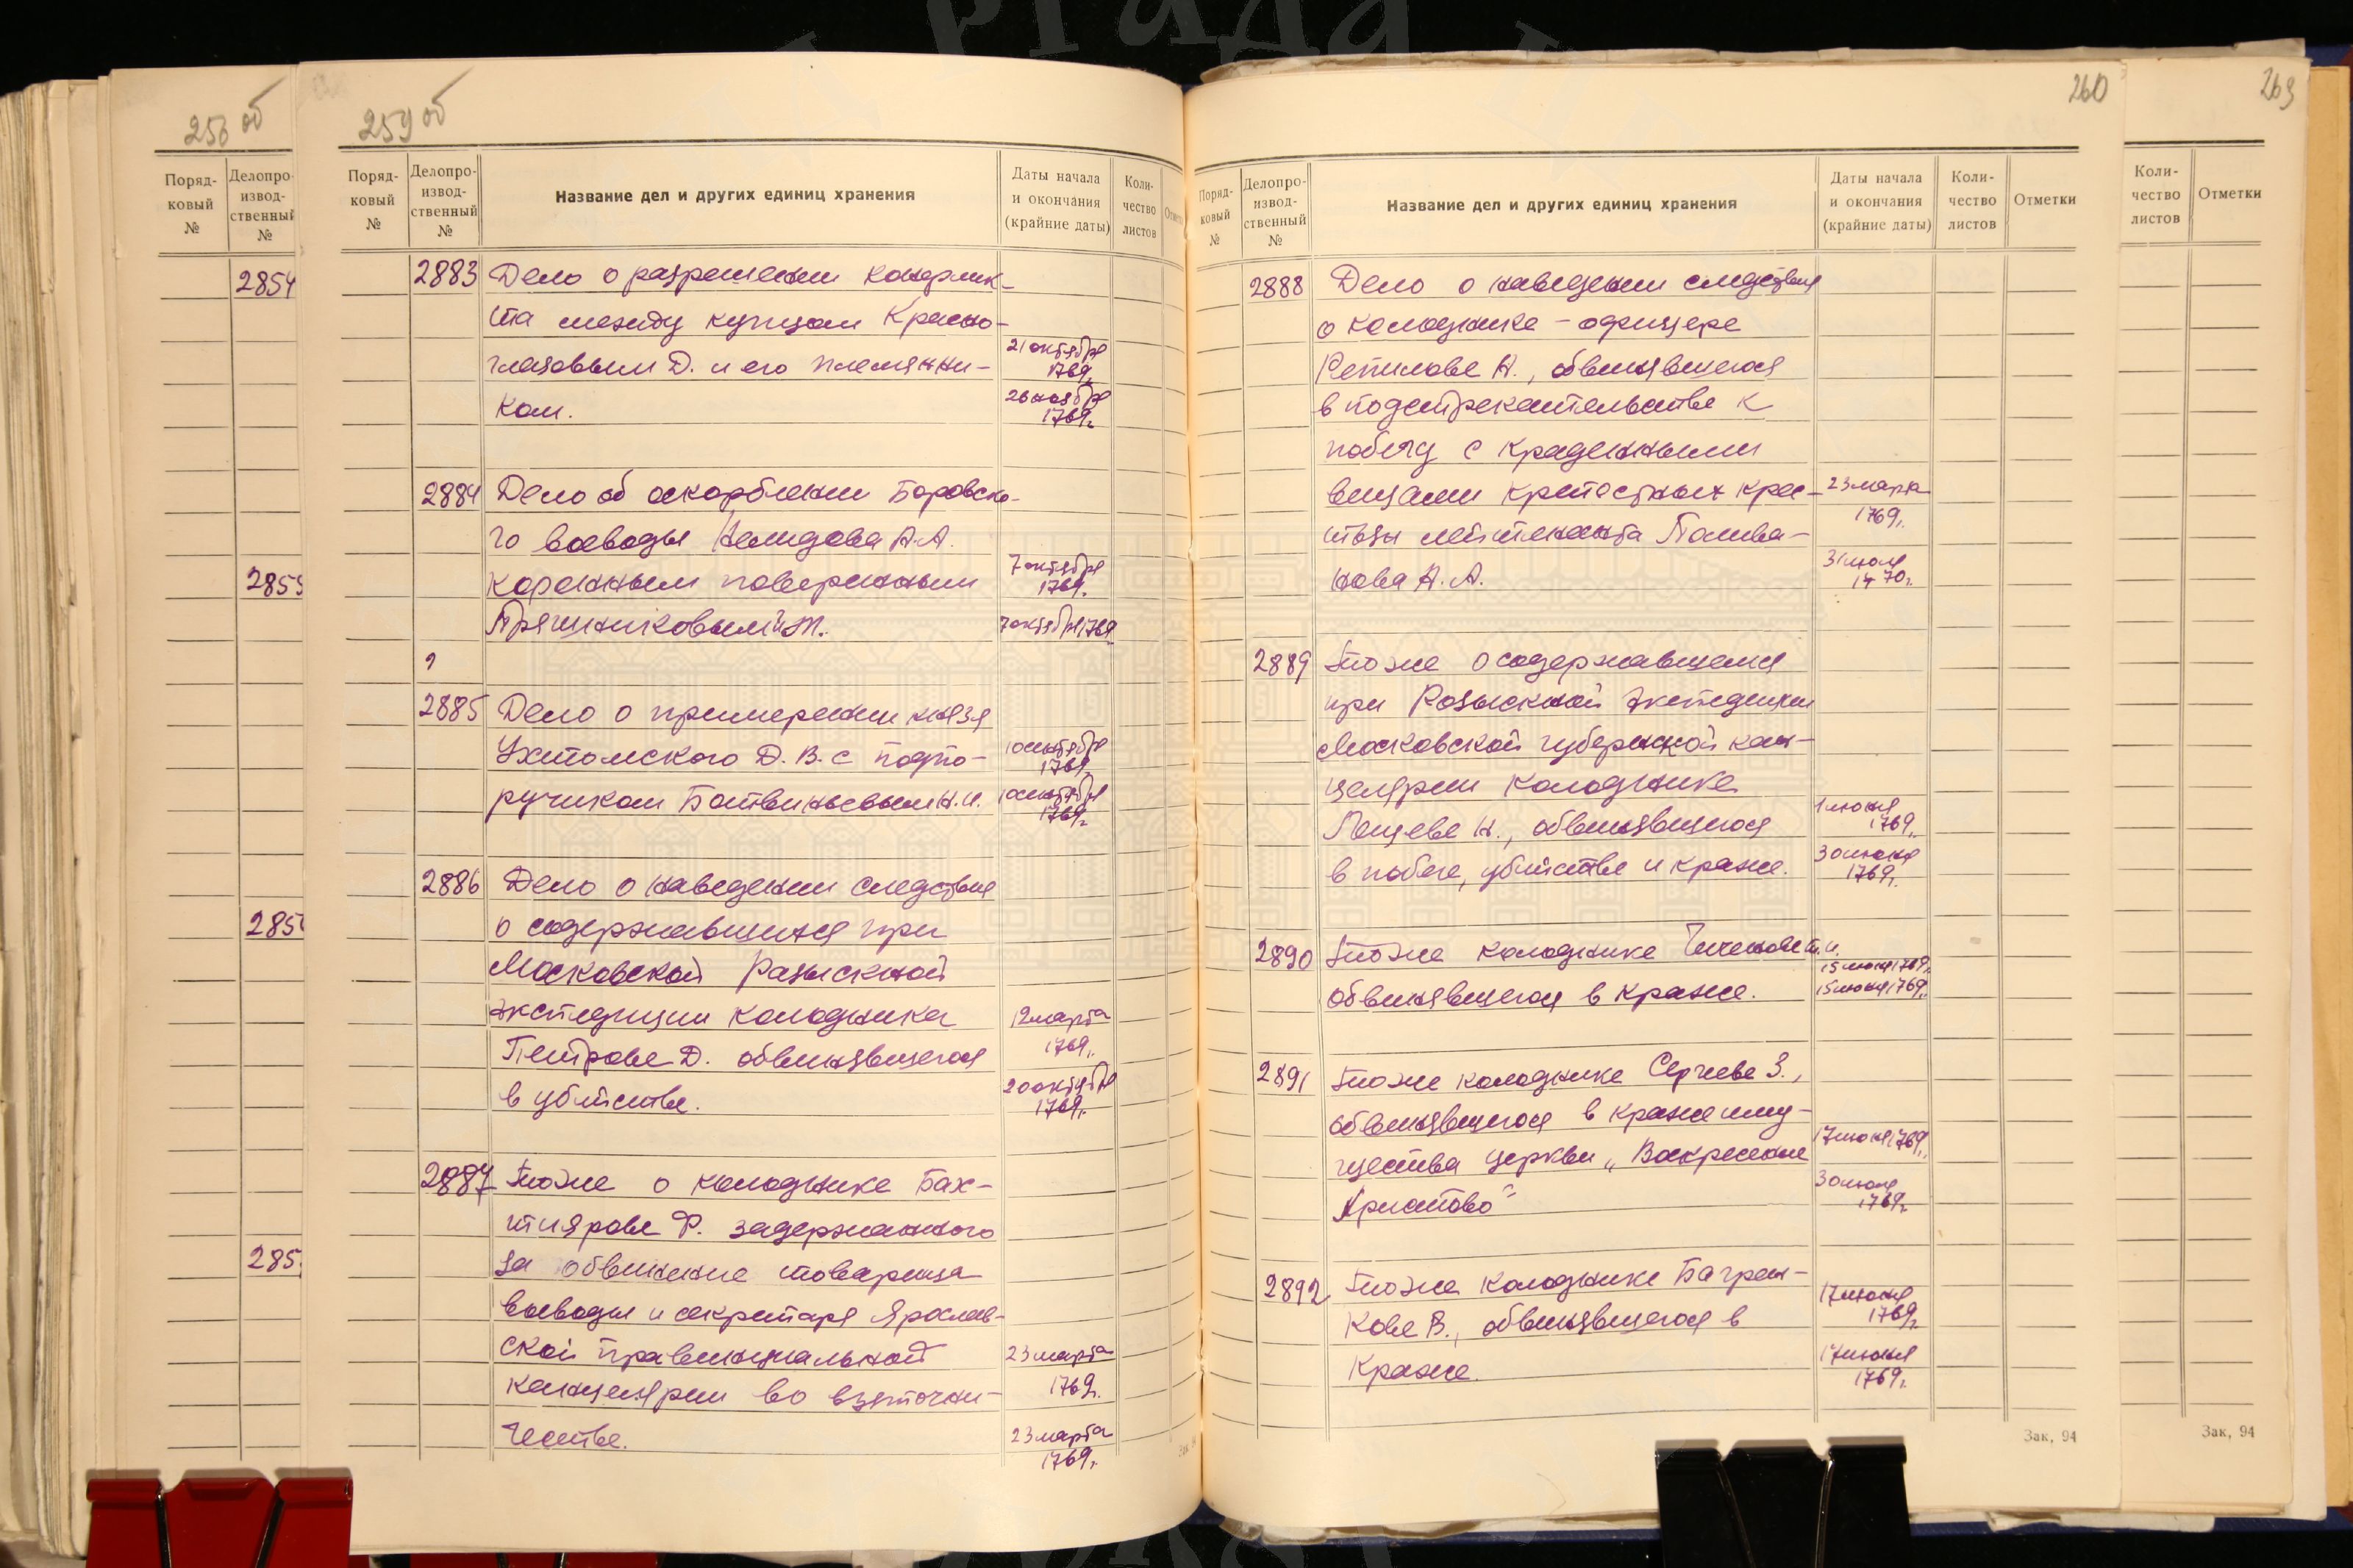 ргада
256 об
Поряд-
ковый
№
Делопро-
извод-
ственный
№
2854
2855
285
285
259 об
Поряд-
ковый
№
Делопро-
извод-
ственный
№
Название дел и других единиц хранения
Даты начала
и окончания
(крайние даты)
Коли-
чество
листов
2883 Дело о разрешении конфлик-
та между купцом Красно-
глазовым Д. и его племянни- 21 октября 1769г.
ком. 26 ноября 1769г.
2884 Дело об оскорблении Боровско-
го воеводы Нелидова А.А.
коренным поверенным 7 октября 1769г.
Прянишниковым Т. 7 октября 1769
2885 Дело о примерении князя
Ухтомского Д.В. с подпо- 10 октября 1769г.
ручиком Батвиньевым Н.И. 10 октября 1769г.
2886 Дело о наведении следствия
о содержавшихся при
Московской Разыскной
экспедиции колодника 12 марта
Петрове Д. обвинявшегося 1769г.
в убийстве. 20 октября 1769г.
2887 То же о колоднике Бах-
тиярове Ф. задержанного
за обвинение товарища
воеводы и секретаря Ярослав-
ской провинциальной 23 марта
канцелярии во взяточни- 1769г.
честве. 23 марта 1769г.
260
Поряд-
ковый
№
Делопро-
извод-
ственный
№
Название дел и других единиц хранения
Даты начала
и окончания
(крайние даты)
Коли-
чество
листов
Отметки
2888 Дело о наведении следствия
о колоднике - офицере
Репилове Н., обвинявшегося
в подстрекательстве к
побегу с крадеными
вещами крепостных крес- 23 марта
тьян лейтенанта Полива- 1769г.
нова А.А. 31 июля 1770г.
2889 То же о содержавшемся
при Розыскной экспедиции
Московской губернской кан-
целярии колоднике
Лещеве Н., обвинявшегося 1 июня 1769г.
в побеге, убийстве и краже. 30 июня 1769г.
2890 То же колоднике
обвинявшегося в краже. 15 июня 1769г.
15 июня 1769г.
2891 То же колоднике Сергиеве З.,
обвинявшегося в краже иму-
щества церкви „Воскресение 17 июня 1769г.
Христово" 30 июля 1769г.
2892 То же колоднике Багрен- 17 июня
кове В., обвинявшегося в 1769г.
краже. 17 июня 1769г.
Зак, 94
263
Коли-
чество
листов
Отметки
Зак, 94